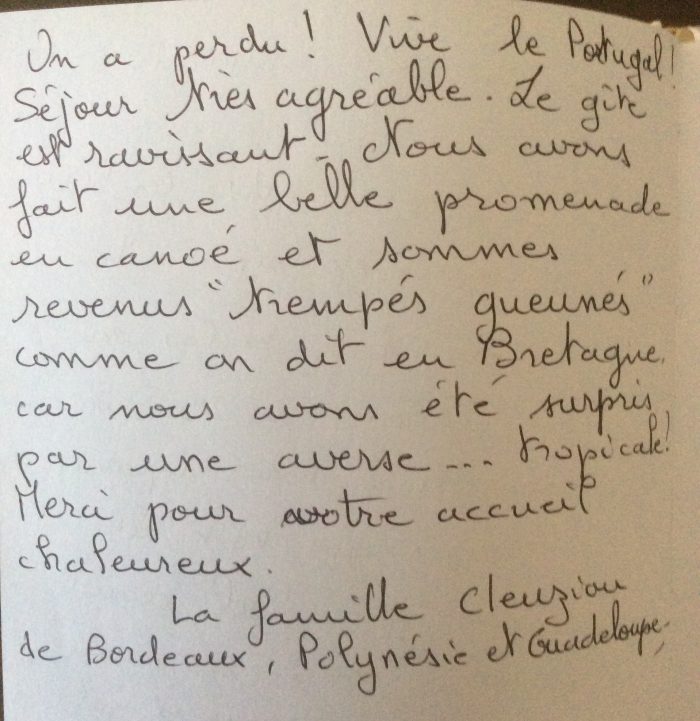 On a perdu ! Vive le Portugal !
Séjour très agréable. Le gîte
est ravissant - Nous avons
fait une belle promenade
en canoé et sommes
revenus "trempés gueunés"
comme on dit en Bretagne,
car nous avons été surpris
par une averse ... tropicale !
Merci pour votre accueil
chaleureux.
La famille Cleuziou
de Bordeaux, Polynésie et Guadeloupe.